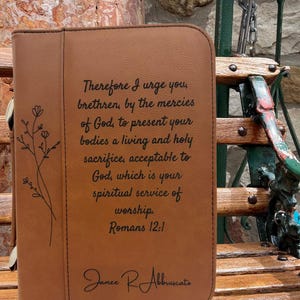 Therefore I urge you,
brethren, by the mercies
of God, to present your
bodies a living and holy
sacrifice, acceptable to
God, which is your
spiritual service of
worship.
Romans 12:1
Janee R Abbruscato